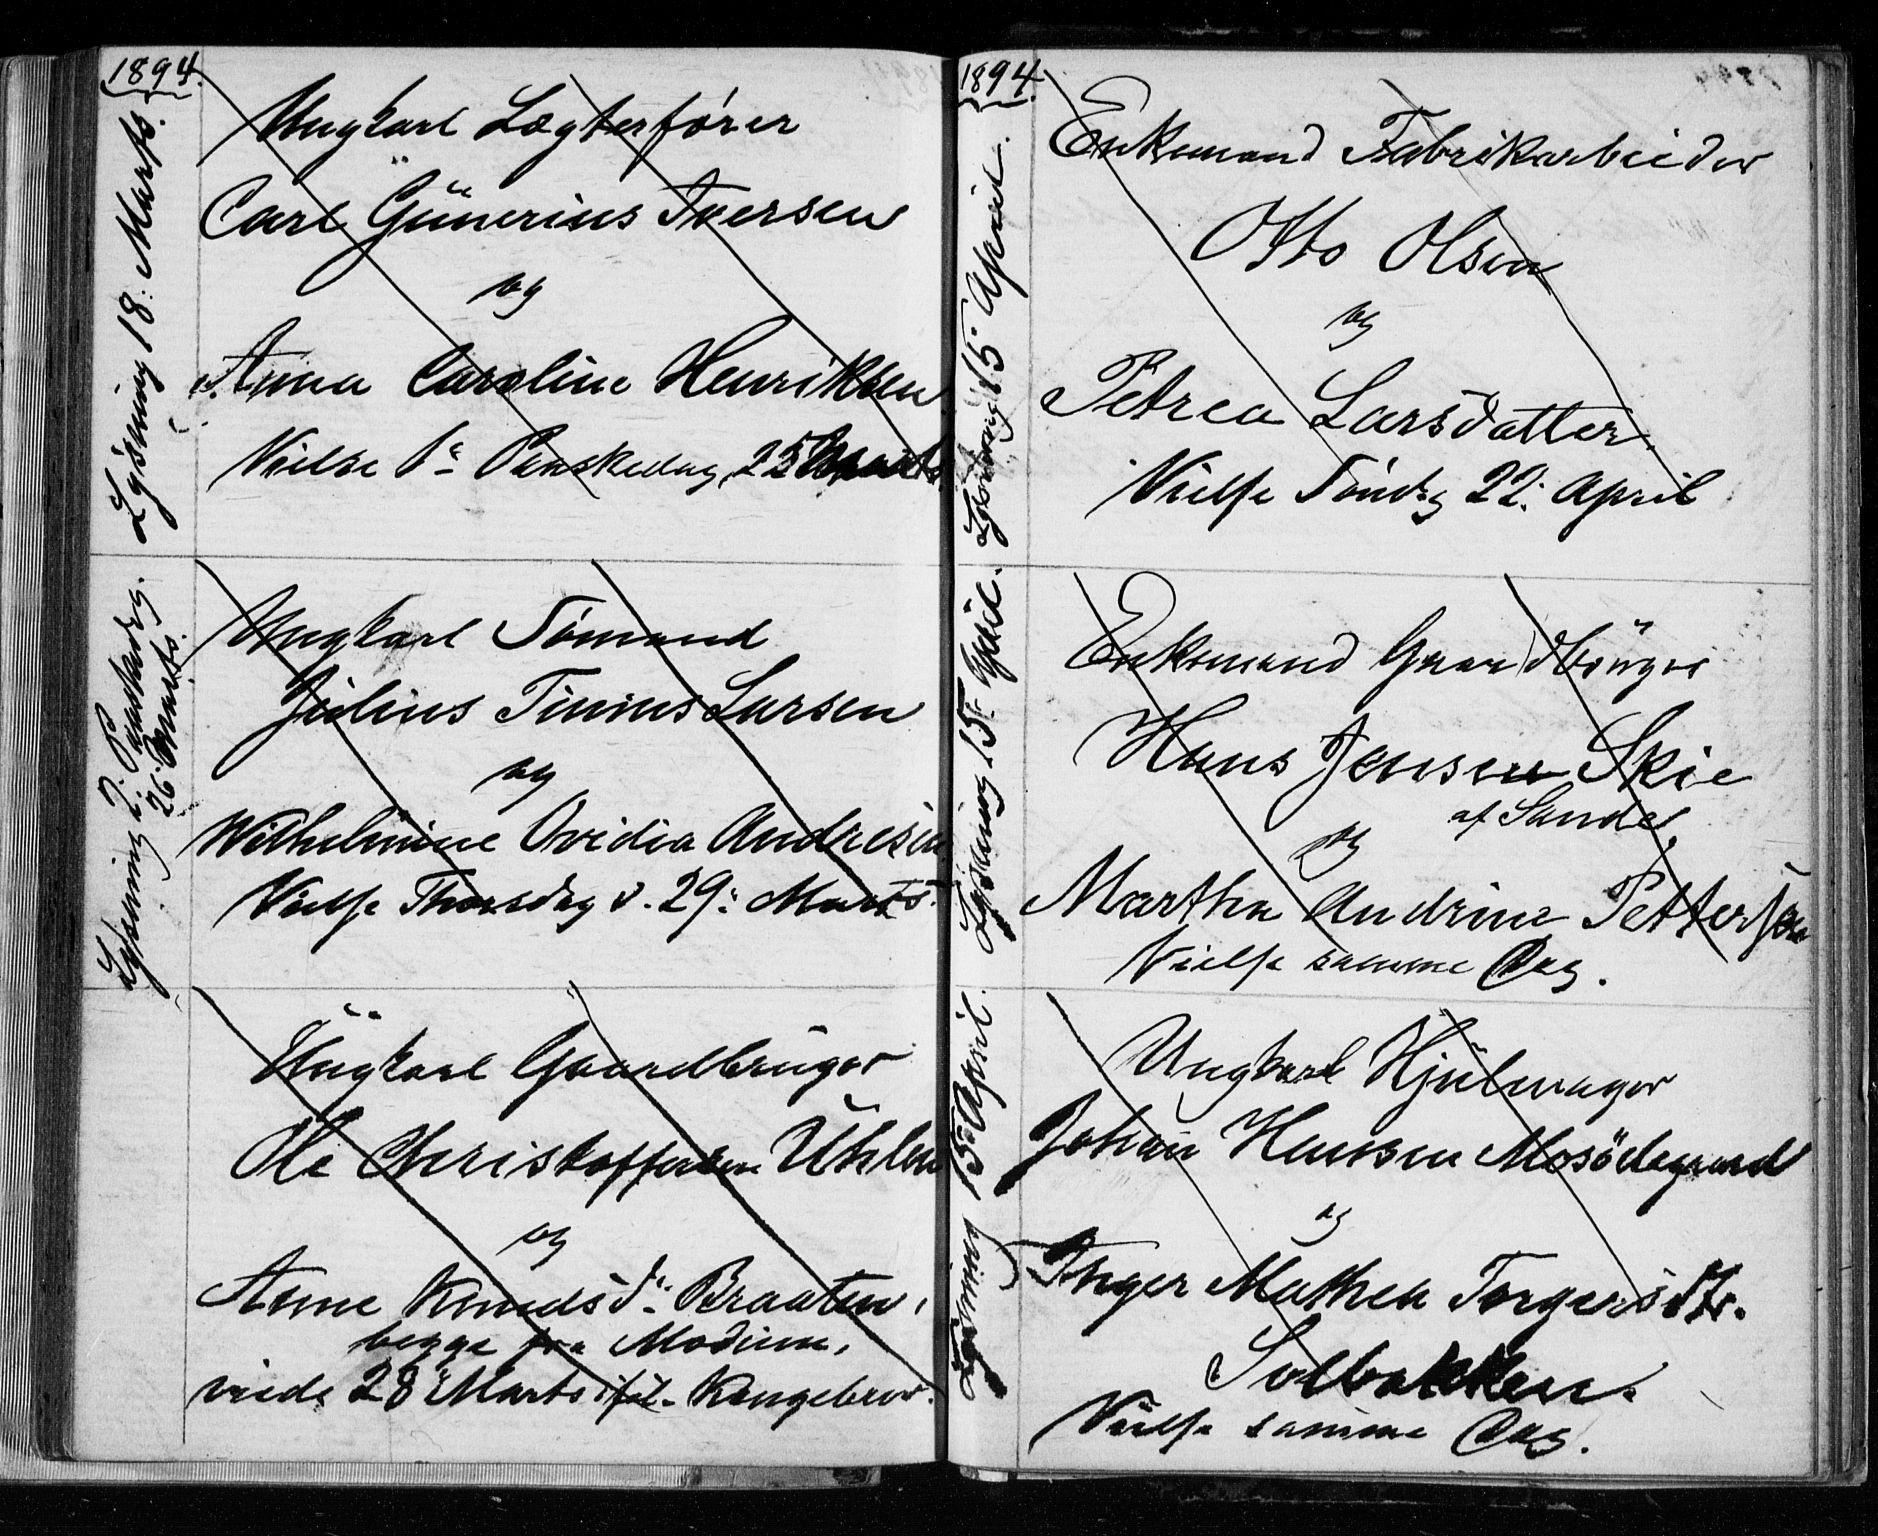 1894.
Lysning 18: Marts.
Ungkarl Lægterfører
Carl Günerius Iversen
og
Anna Caroline Henriksen
Vielse 1ste Paaskedag 25 Marts
Lysning 2. Paaskedag.
26: Marts.
Ungkarl Sömand
Julius Tinius Larsen
og
Wilhelmine Ovidia Andresen
Vielse Thorsdag d. 29: Marts.
Ungkarl Gaardbrüger
Ole Christoffersen Ühlen
og
Anne Knudsd: Braaten,
begge fra Modum,
viede 28 Marts Kongebrev.
1894.
Lysning 15: April.
Enkemand Fabrikarbeider
Otto Olsen
og
Petrea Larsdatter.
Vielse Söndag 22: April
Lysning 15: April.
Enkemand Gaardbrüger
Hans Jensen Skie
af Sande,
og
Marthea Andrine Pettersen
Vielse samme Dag.
Lysning 15: April.
Ungkarl Hjülmager
Johan Hansen Mosödegaard
og
Inger Mathea Torgersdtr.
Solbakken.
Vielse samme Dag.